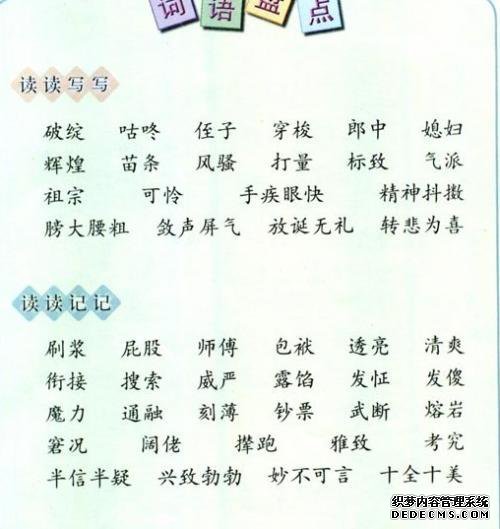 词语盘点
读读写写
破绽 咕咚 侄子 穿梭 郎中 媳妇
辉煌 苗条 风骚 打量 标致 气派
祖宗 可怜 手疾眼快 精神抖擞
膀大腰粗 敛声屏气 放诞无礼 转悲为喜
读读记记
刷浆 屁股 师傅 包袱 透亮 清爽
衔接 搜索 威严 露馅 发怔 发傻
魔力 通融 刻薄 钞票 武断 熔岩
窘况 阔佬 撵跑 雅致 考究
半信半疑 兴致勃勃 妙不可言 十全十美
织梦内容管理系统
DEDECMS.COM